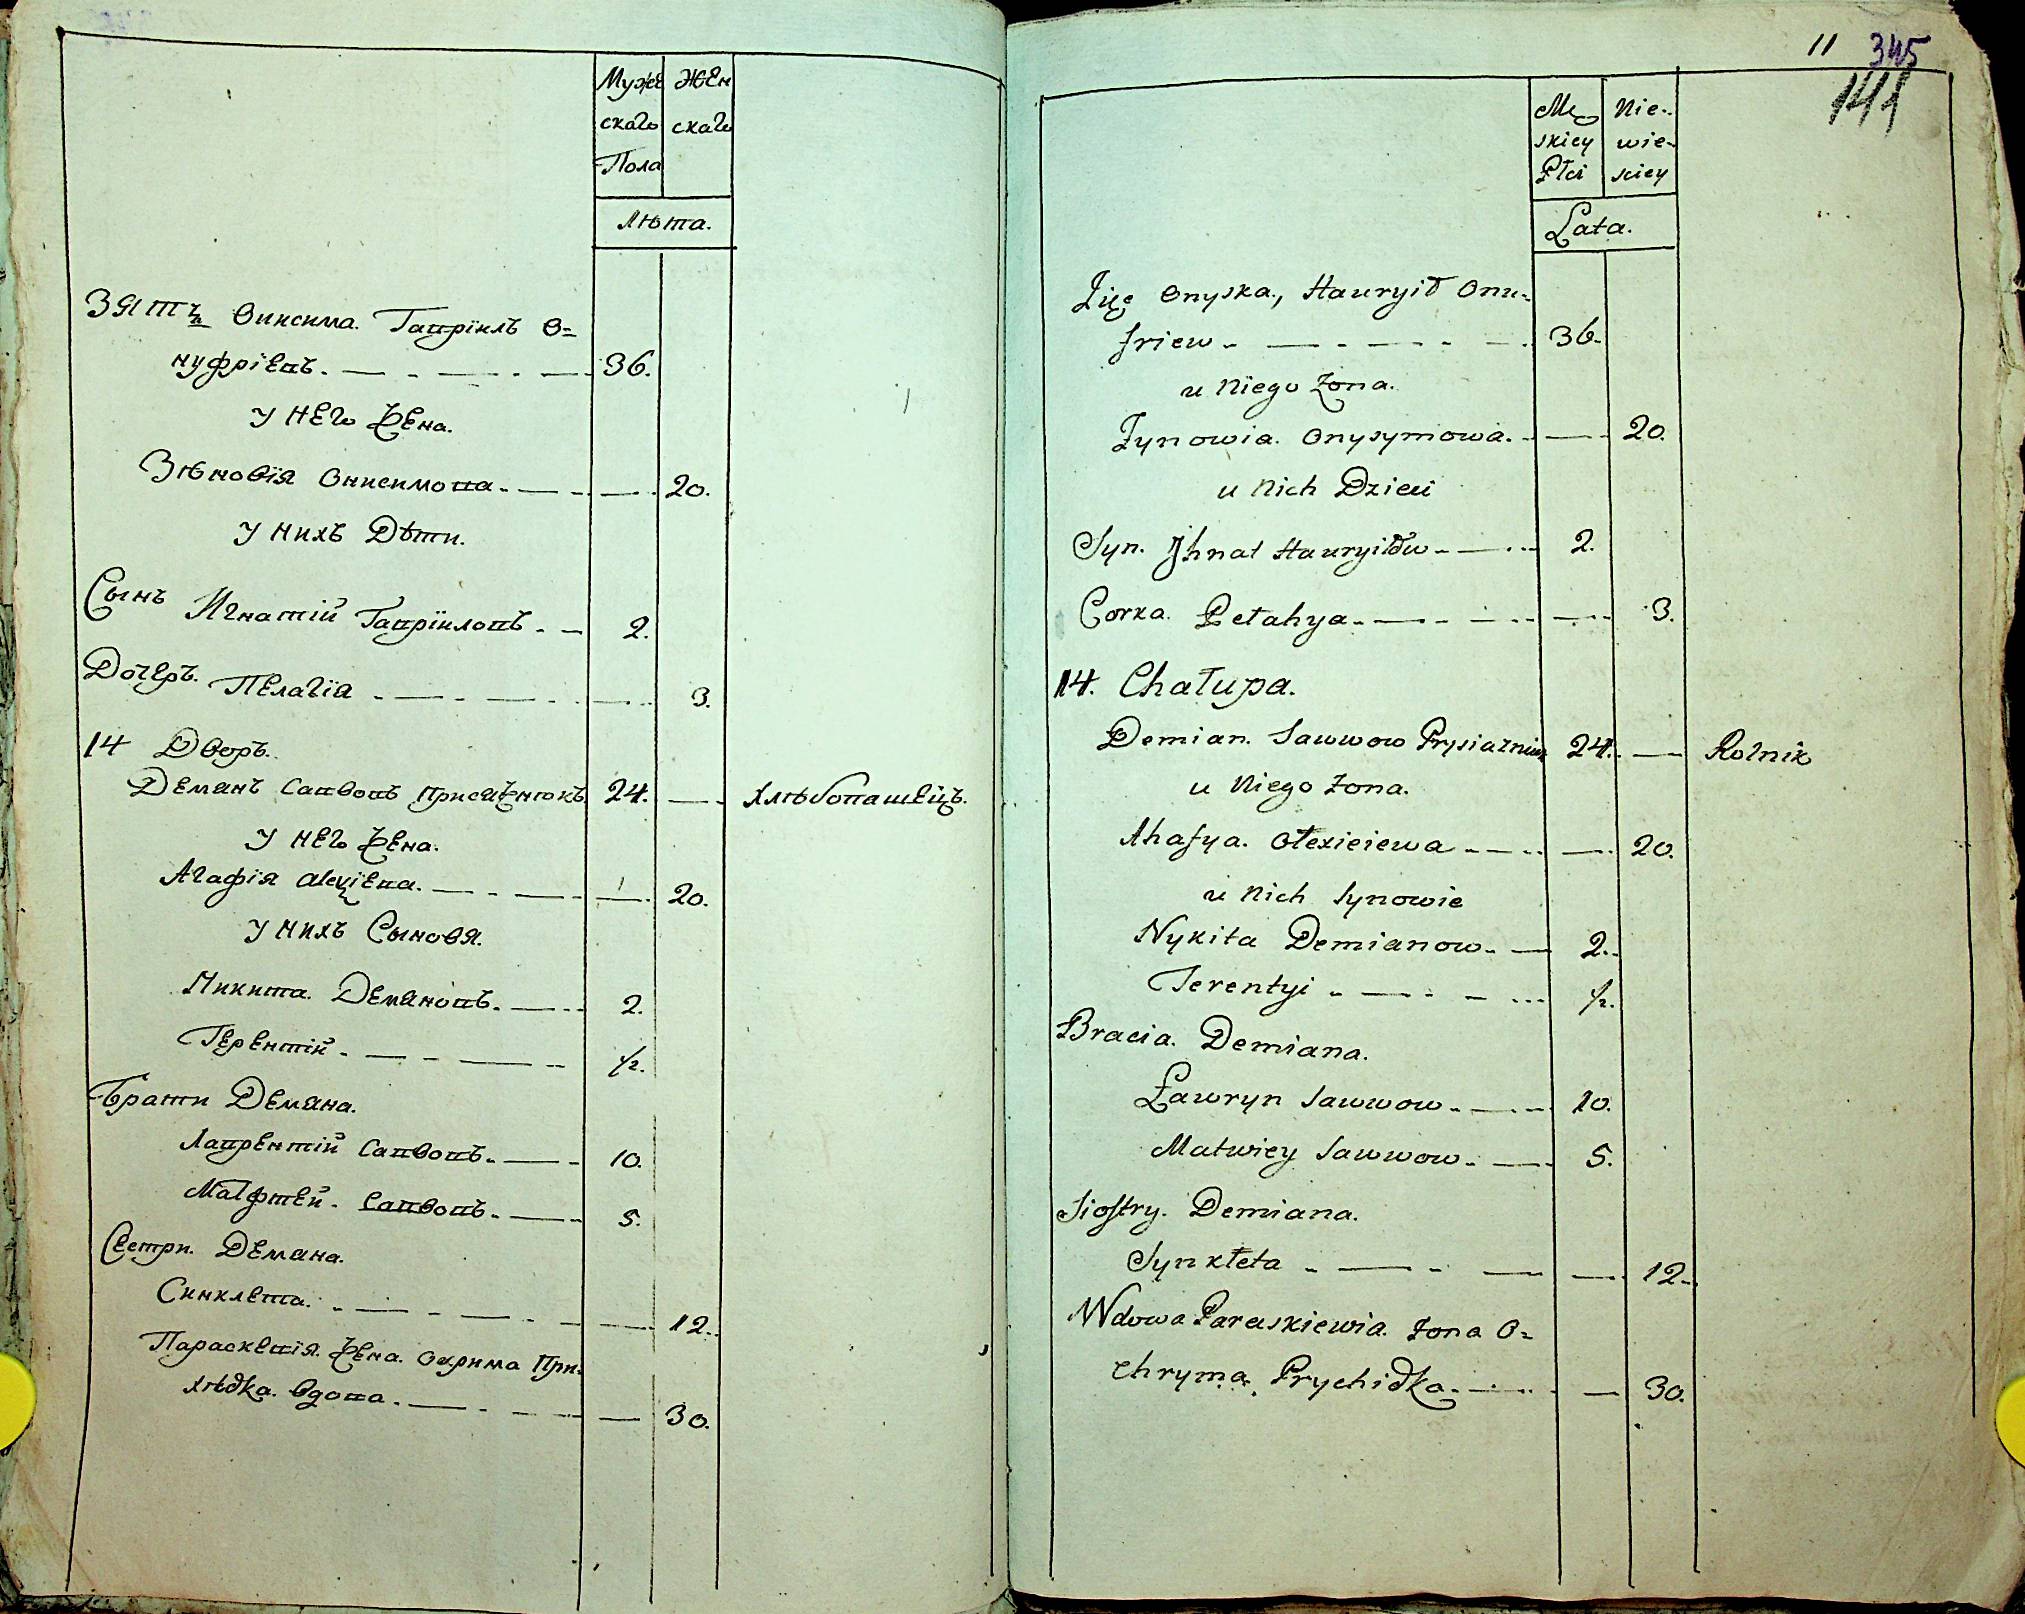 Муже Жен
скаго скаго
Пола
Лѣта.
Зять Онисима. Гавріилъ О=
нуфріевъ. 36.
у него Жена.
Зѣновія Онисимова. 20.
у нихъ Дѣти.
Сынъ Игнатій Гавріиловъ. 2.
Дочеръ. Пелагія 3.
14 Дворъ.
Демянъ Саввовъ Присяжнюкъ 24. Хлѣбопашецъ.
у него Жена.
Агафія Alexіева. 20.
у нихъ Сыновя.
Никита. Демяновъ. 2.
Терентій. 1/2.
Брати Демяна.
Лаврентій Саввовъ. 10.
Матфтей. Саввовъ. 5.
Сестри. Демяна.
Синклета. 12.
Параскевія. Жена. Охрима При=
хѣдка. вдова. 30.
11 345
141
Mę Nie-
skiey wie-
Płci sciey
Lata.
Zięć Onyska, Hauryił Onu=
friew 36.
u Niego Żona.
Zynowia. Onysymowa. 20.
u Nich Dzieci
Syn. Jhnat Hauryiłow 2.
Corka. Pełahya 3.
14. Chałupa.
Demian. Sawwow Prysiazniuk 24. Rolnik
u Niego Żona.
Ahafya. Ołexieiewa 20.
u Nich Synowie
Nykita Demianow. 2.
Terentyi 1/2.
Bracia. Demiana.
Ławryn Sawwow 10.
Matwiey Sawwow 5.
Siostry. Demiana.
Synkłeta 12.
Wdowa Paraskiewia. Żona O=
chryma. Prychidka. 30.